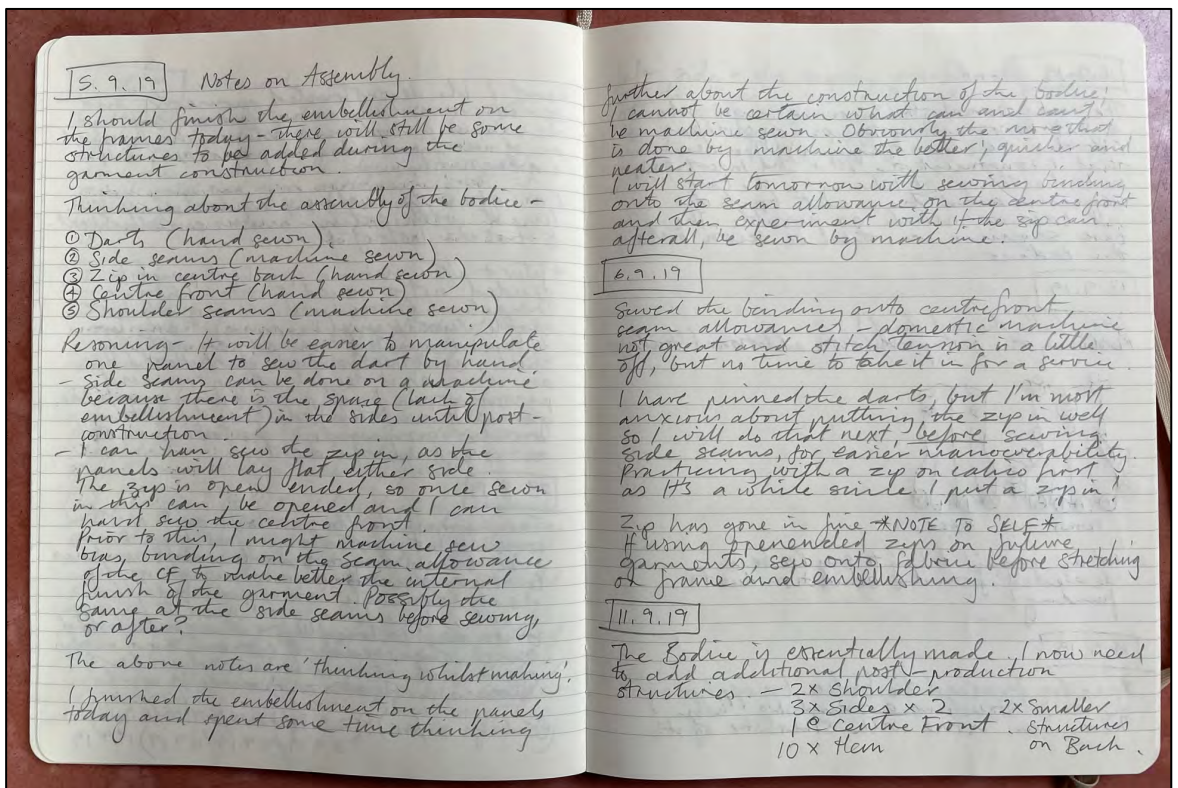 5.9.19 Notes on Assembly.
I should finish the embellishment on
the frames today - there will still be some
structures to be added during the
garment construction.
Thinking about the assembly of the bodice -
① Darts (hand sewn).
② Side seams (machine sewn)
③ Zip in centre back (hand sewn)
④ Centre front (hand sewn)
⑤ Shoulder seams (machine sewn)
Resoning - It will be easier to manipulate
one panel to sew the dart by hand.
- Side seams can be done on a machine
because there is the space (lack of
embellishment) in the sides until post-
construction.
- I can han sew the zip in, as the
panels will lay flat either side.
The zip is open ended, so once sewn
in this can be opened and I can
hand sew the centre front.
Prior to this, I might machine sew
bias binding on the seam allowance
of the CF to make better the internal
finish of the garment. Possibly the
same at the side seams before sewing,
or after?
The above notes are 'thinking whilst making'.
I finished the embellishment on the panels
today and spent some time thinking
further about the construction of the bodice;
I cannot be certain what can and can't
be machine sewn. Obviously the more that
is done by machine the better, quicker and
neater.
I will start tomorrow with sewing binding
onto the seam allowance, on the centre front
and then experiment with if the zip can,
afterall, be sewn by machine.
6.9.19
Sewed the binding onto centre front
seam allowances - domestic machine
not great and stitch tension is a little
off, but no time to take it in for a service.
I have pinned the darts, but I'm most
anxious about putting the zip in well
so I will do that next, before sewing
side seams, for easier manoeverability.
Practicing with a zip on calico first
as it's a while since I put a zip in!
Zip has gone in fine *NOTE TO SELF*
If using openended zips on future
garments, sew onto fabric before stretching
on frame and embellishing.
11.9.19
The Bodice is essentially made. I now need
to add additional post-production
structures. - 2x Shoulder
3x Sides x 2 2x Smaller
1 @ Centre Front. structures
10 x Hem on Back.